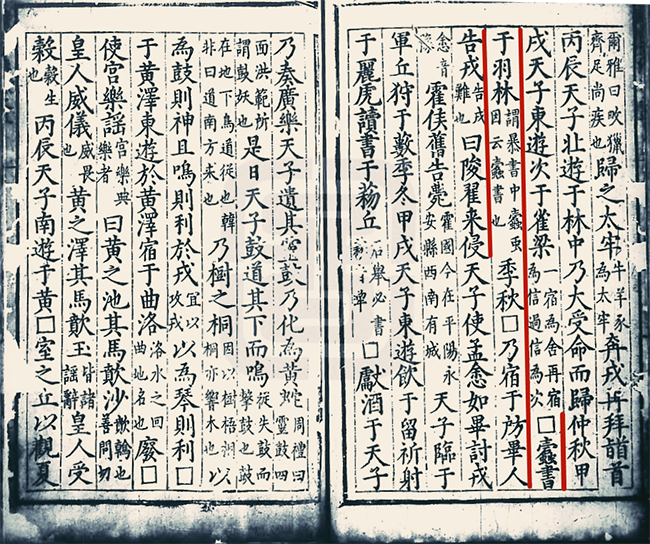 爾雅曰吠獵齊足尚疾也歸之太牢牛羊豕為太牢奔戎再拜䭫首
丙辰天子北遊于林中乃大受命而歸仲秋甲
戌天子東遊次于雀梁一宿為舍再宿為信過信為次□蠹書
于羽林謂暴書中蠹虫因云蠹書也季秋□乃宿于防畢人
告戎告戎難也曰陵翟来侵天子使孟悆如畢討戎
悆音霍侯舊告薨霍國今在平陽永安縣西南有城天子臨于
軍丘狩于藪季冬甲戌天子東遊飲于留祈射
于麗虎讀書于菞丘舉必書□獻酒于天子
乃奏廣樂天子遺其靈鼓乃化為黄蛇周禮曰靈鼓四
面洪範所謂鼓妖也是日天子鼓道其下而鳴從失鼓而擊鼓也鼓
在地下鳥道從也韓非曰道南方来也乃樹之桐因以樹梧桐亦響木也以
為鼓則神且鳴則利於戎宜以攻戎以為琴則利□
于黄澤東遊於黄澤宿于曲洛洛水之回曲地名也廢□
使宫樂謡宫樂典樂者曰黄之池其馬歕沙歕翰也喜問切
皇人威儀威畏也黄之澤其馬歕玉皆諸謡辭皇人受
穀穀生也丙辰天子南遊于黄□室之丘以觀夏